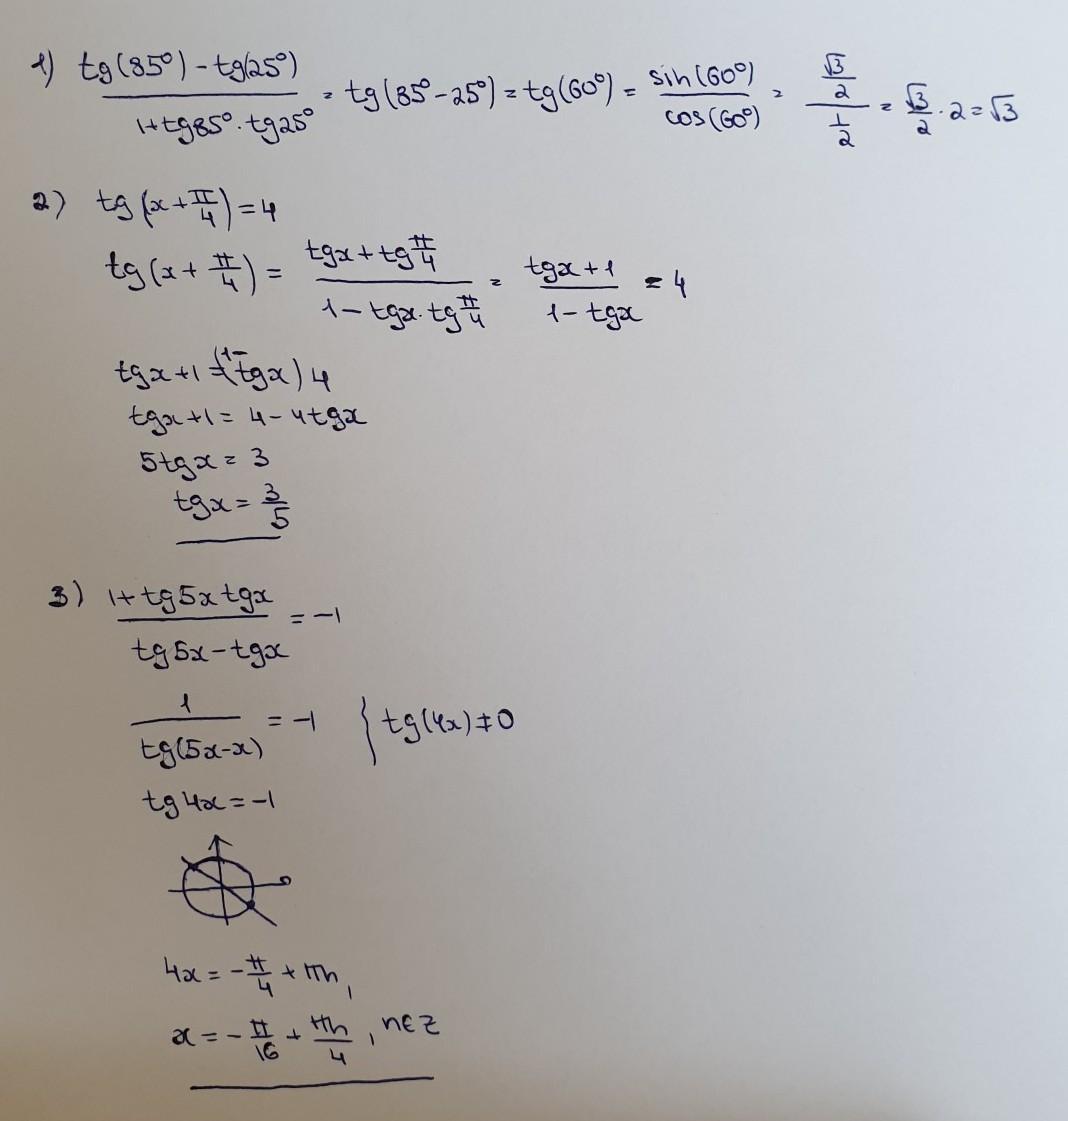 1) (tg(85°) - tg(25°))/(1+tg85°·tg25°) = tg(85°-25°) = tg(60°) = sin(60°)/cos(60°) = (√3/2)/(1/2) = √3/2 · 2 = √3
2) tg(x+π/4) = 4
tg(x+π/4) = (tgx+tgπ/4)/(1-tgx·tgπ/4) = (tgx+1)/(1-tgx) = 4
tgx+1 = (1-tgx)4
tgx+1 = 4-4tgx
5tgx = 3
tgx = 3/5
3) (1+tg5xtgx)/(tg5x-tgx) = -1
1/tg(5x-x) = -1 } tg(4x)≠0
tg4x = -1
4x = -π/4 + πn,
x = -π/16 + πn/4, n∈Z